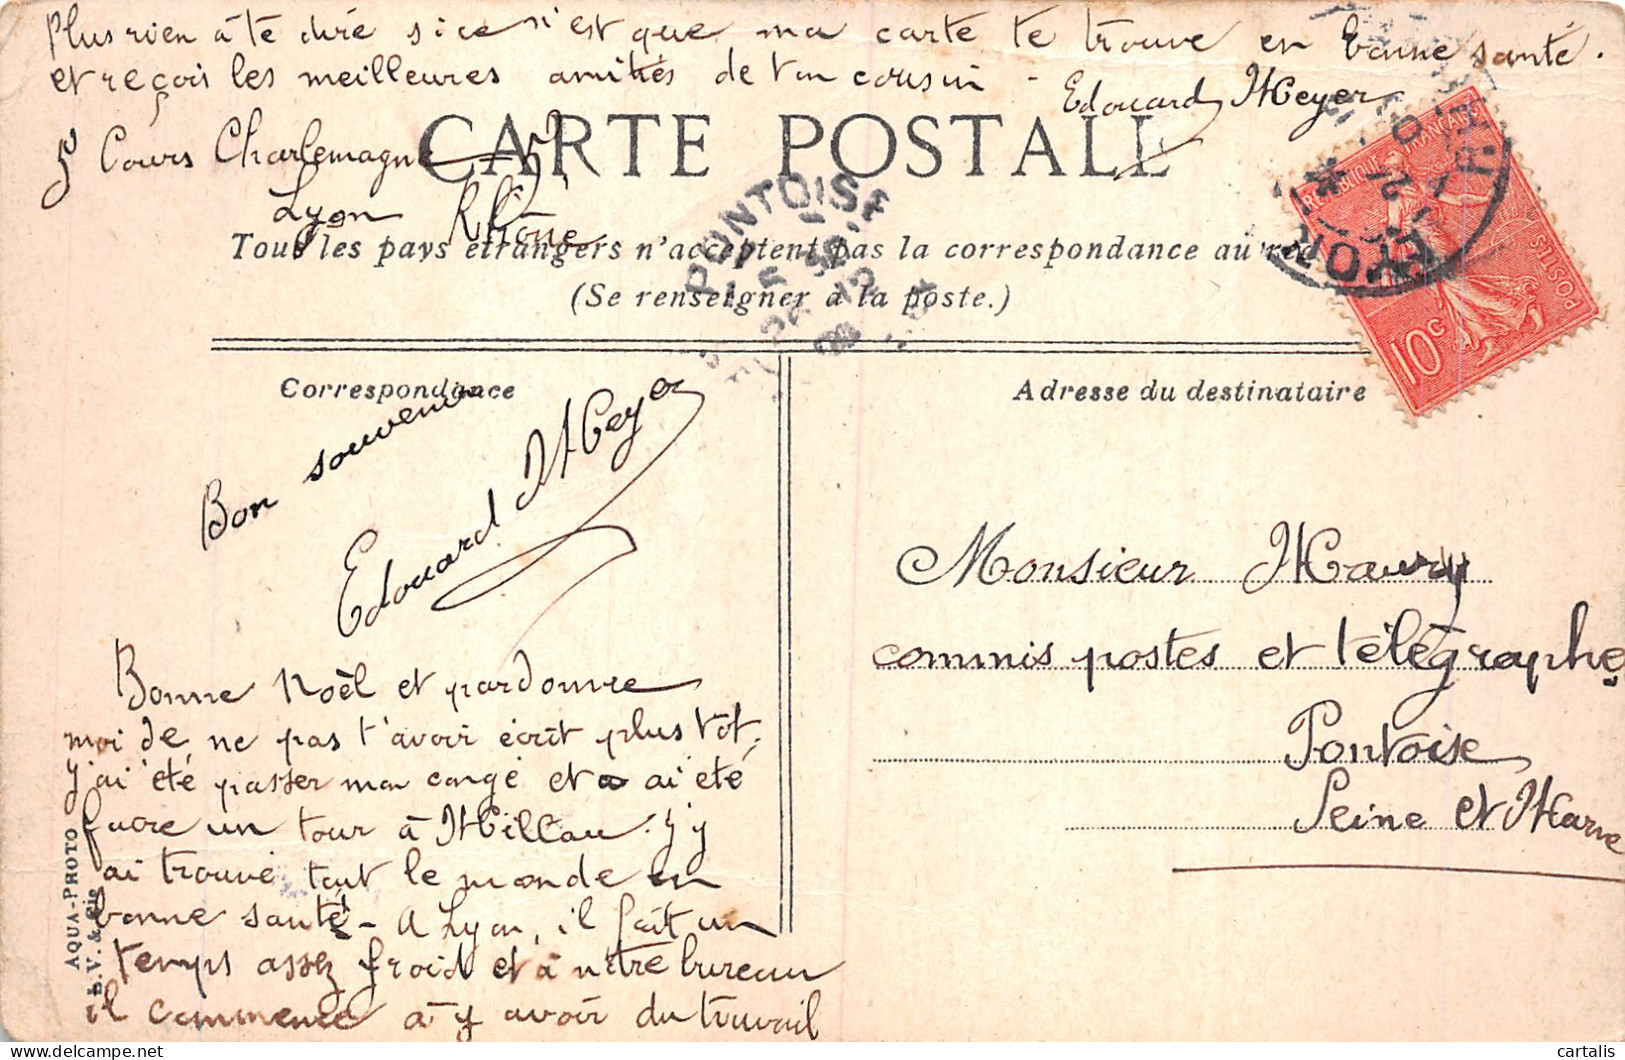 Plus rien à te dire si ce n'est que ma carte te trouve en bonne santé.
et reçois les meilleures amitiés de ton cousin -
Edouard Meyer
5 Cours Charlemagne 5
Lyon Rhône
CARTE POSTALE
Tous les pays étrangers n'acceptent pas la correspondance au
(Se renseigner à la poste.)
PONTOISE
LYON
RHÔ
RÉPUBLIQUE FRANÇAISE
POSTES
10c
Correspondance
Adresse du destinataire
Bon souvenir
Edouard Meyer
Bonne Noël et pardonne
moi de ne pas t'avoir écrit plus tôt,
j'ai été passer mon congé et ai été
faire un tour à Millau. J'y
ai trouvé tout le monde en
bonne santé - A Lyon, il fait un
temps assez froid et à nôtre bureau
il commence à y avoir du travail
Monsieur Maury
commis postes et télégraphe
Pontoise
Seine et Marne
AQUA-PHOTO
L.V. & Cie
cartalis